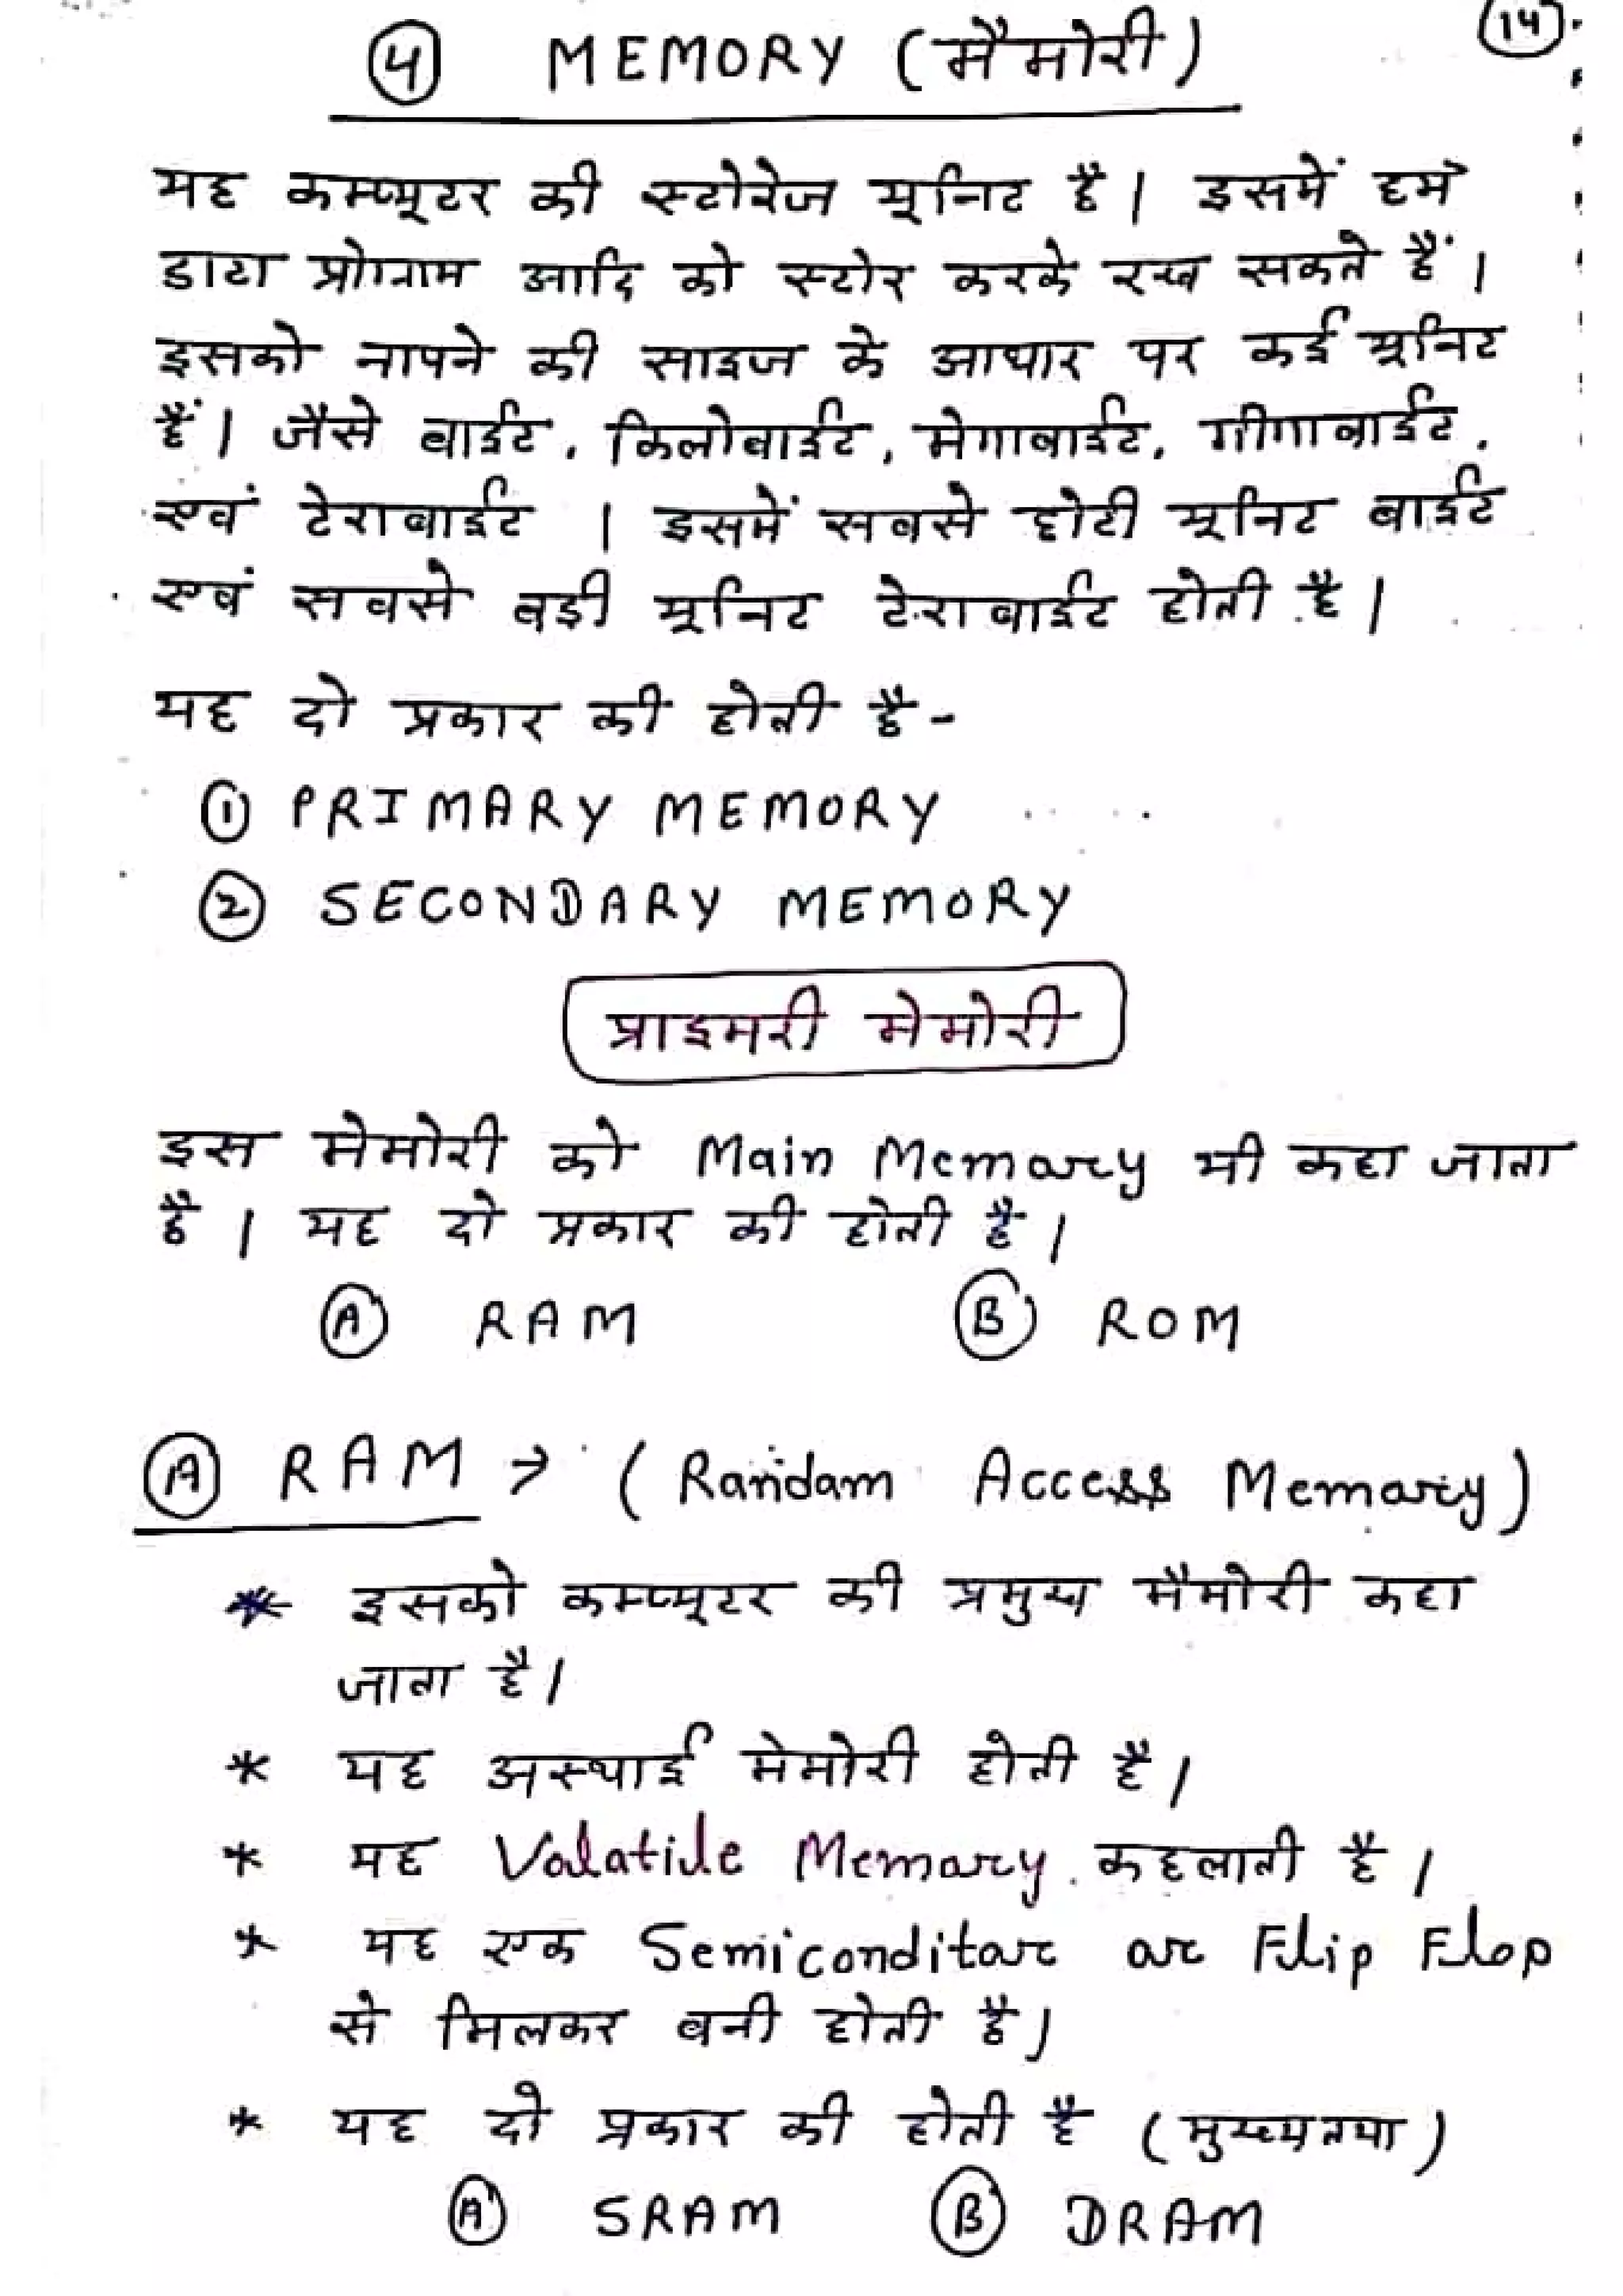 14
4 MEMORY (मैमोरी)
यह कम्प्यूटर की स्टोरेज यूनिट है। इसमें हम
डाटा प्रोग्राम आदि को स्टोर करके रख सकते हैं।
इसको नापने की साइज के आधार पर कई यूनिट
हैं। जैसे बाईट, किलोबाईट, मेगाबाईट, गीगाबाईट,
एवं टेराबाईट । इसमें सबसे छोटी यूनिट बाईट
एवं सबसे बडी यूनिट टेराबाईट होती है।
यह दो प्रकार की होती है -
1 PRIMARY MEMORY
2 SECONDARY MEMORY
प्राइमरी मेमोरी
इस मेमोरी को Main Memory भी कहा जाता
है । यह दो प्रकार की होती है।
A RAM B ROM
A RAM → (Random Access Memory)
* इसको कम्प्यूटर की प्रमुख मैमोरी कहा
जाता है।
* यह अस्थाई मेमोरी होती है।
* यह Volatile Memory कहलाती है।
* यह एक Semiconditor or Flip Flop
से मिलकर बनी होती है।
* यह दो प्रकार की होती है (मुख्यतया)
A SRAM B DRAM